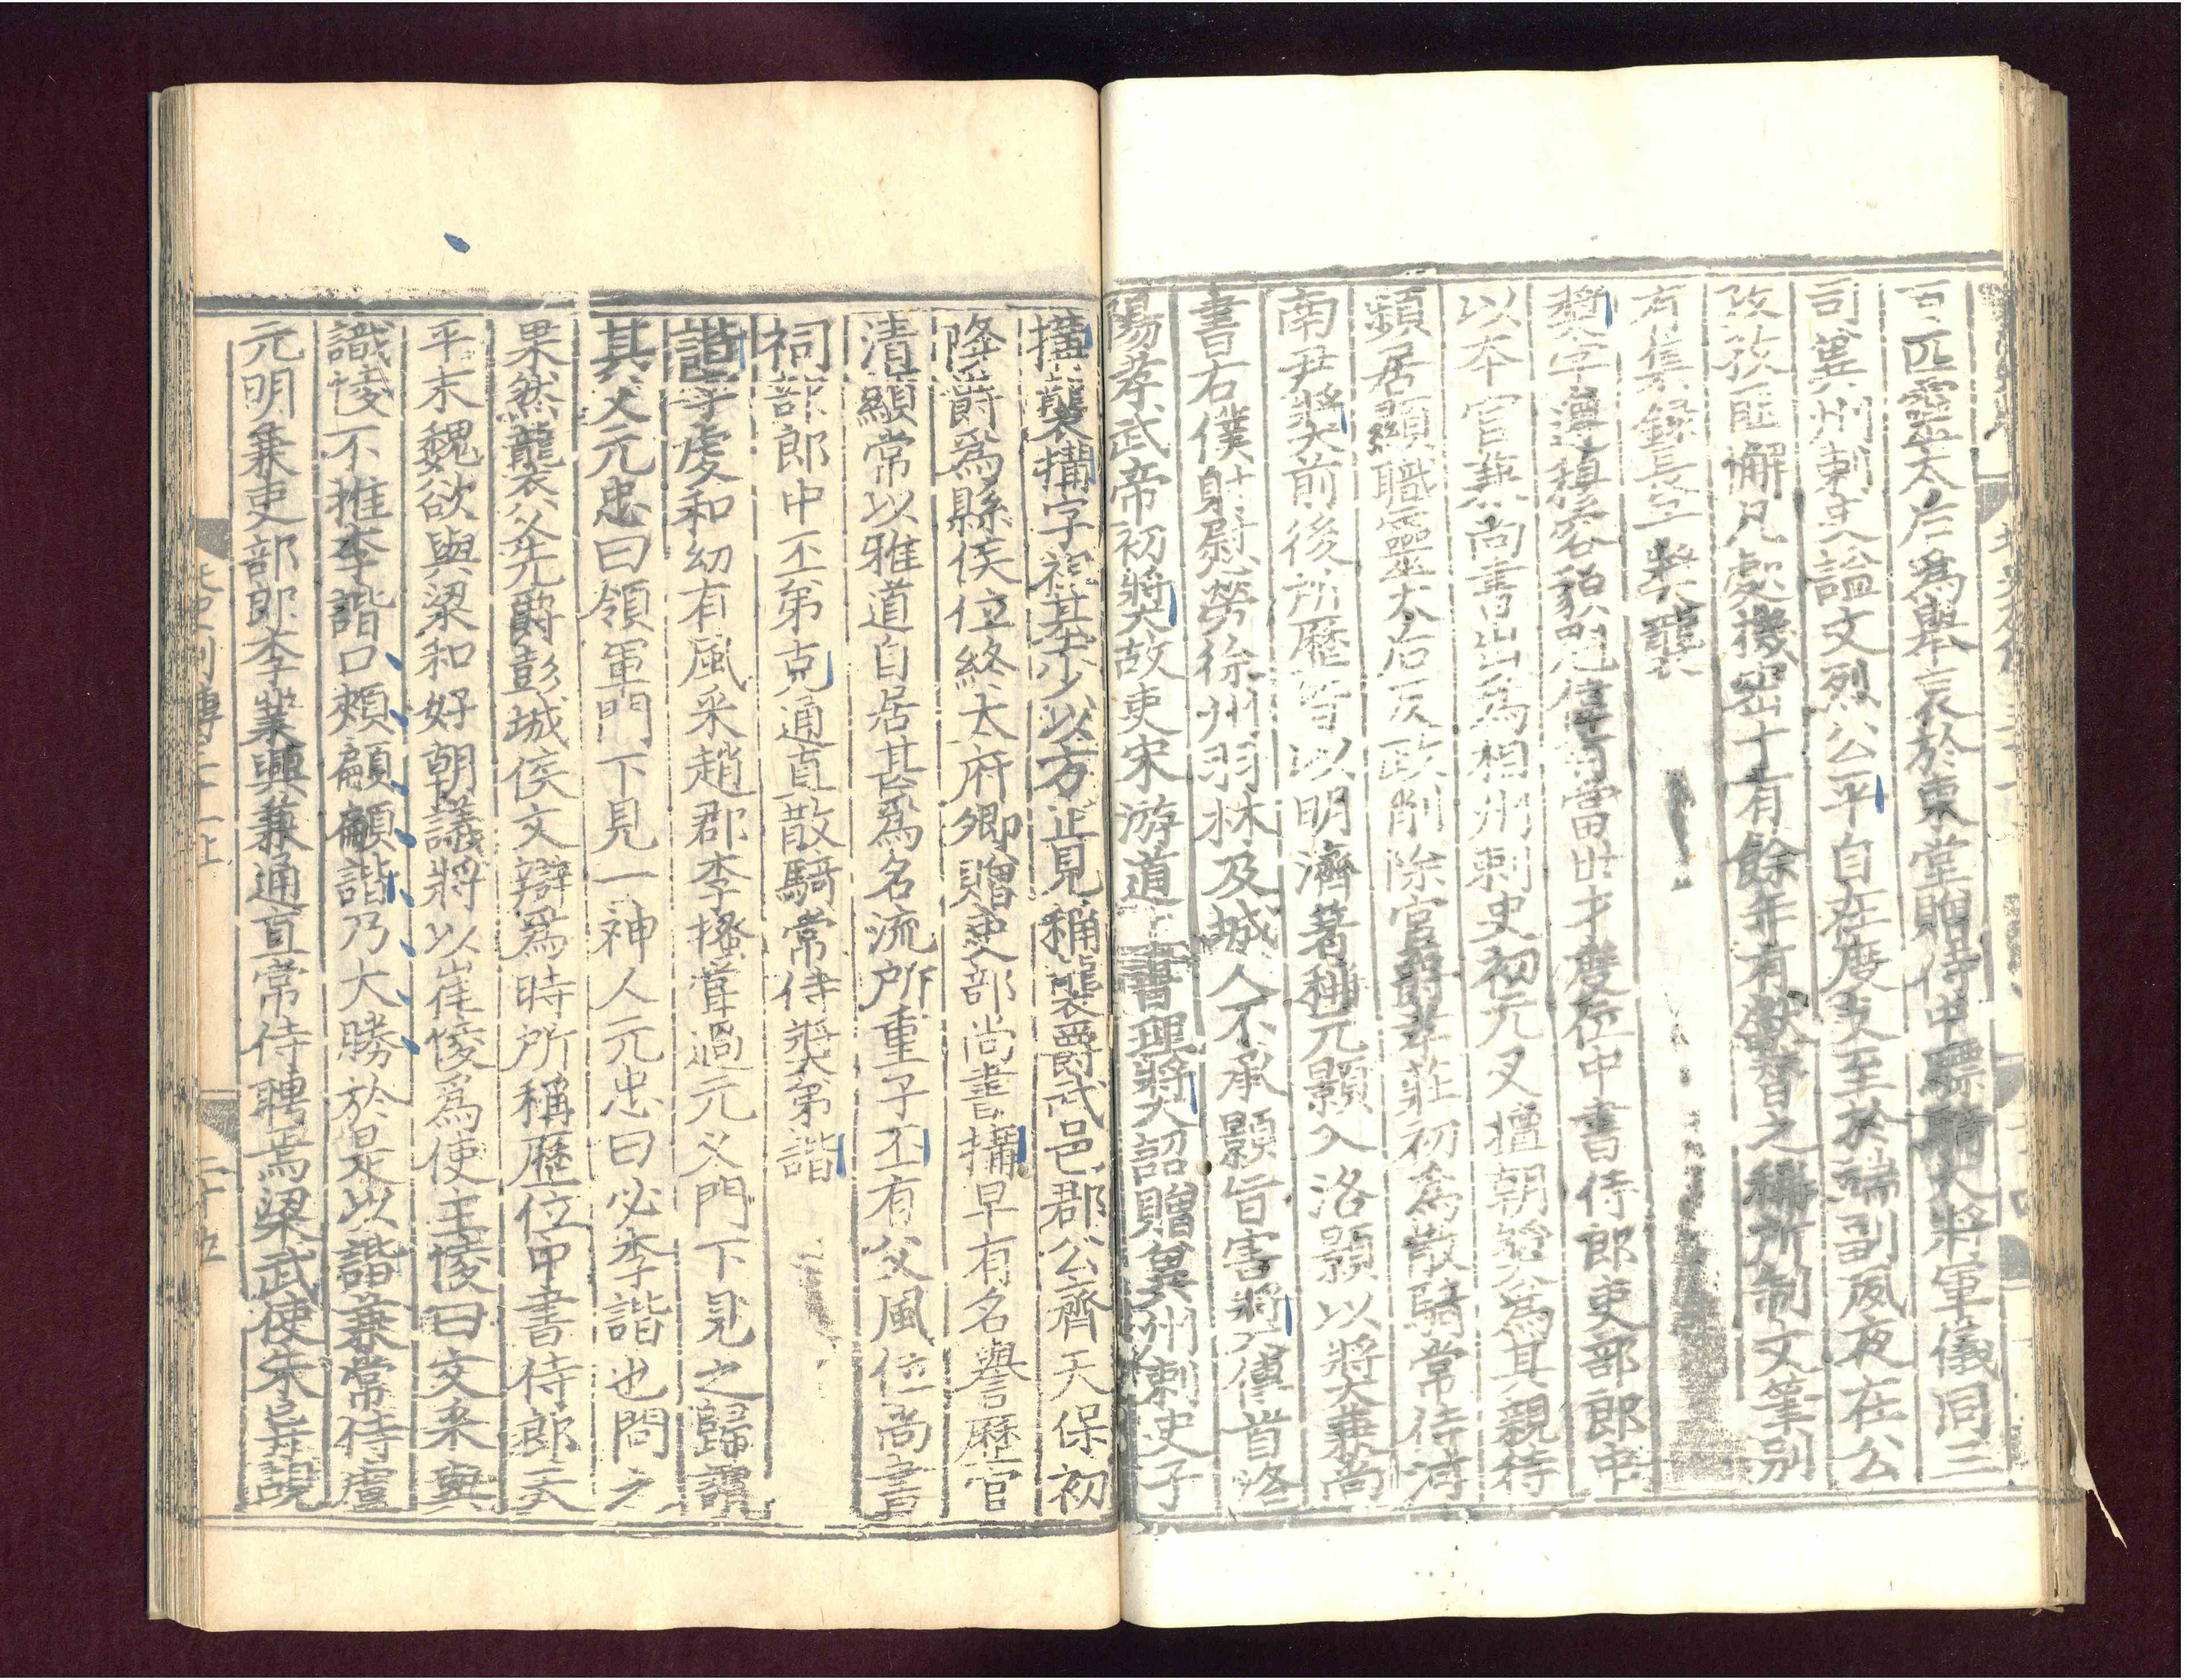 百匹靈太后爲舉哀於東堂贈侍中驃騎大將軍儀同三
司兾州刺史謚文烈公平自在度支至於端副夙夜在公
孜孜匪懈凡處機密十有餘年有獻替之稱所制文筆別
有集録長子獎襲
獎字遵穆容貌魁偉有當世才度位中書侍郎吏部郎中
以本官兼尚書出爲相州刺史初元叉擅朝獎爲其親待
頻居顯職靈太后反政削除官爵孝莊初爲散騎常侍河
南尹獎前後所歷皆以明濟著稱元顥入洛顥以獎兼尚
書右僕射慰勞徐州羽林及城人不承顥旨害獎傳首洛
陽孝武帝初獎故吏宋游道上書理獎詔贈兾州刺史子
搆襲搆字祖基少以方正見稱襲爵武邑郡公齊天保初
降爵爲縣侯位終太府卿贈吏部尚書搆早有名譽歷官
清顯常以雅道自居甚爲名流所重子丕有父風位尚書
祠部郎中丕弟克通直散騎常侍獎弟諧
諧字虔和幼有風采趙郡李搔嘗過元叉門下見之歸謂
其父元忠曰領軍門下見一神人元忠曰必李諧也問之
果然襲父先爵彭城侯文辯爲時所稱歷位中書侍郎天
平末魏欲與梁和好朝議將以崔㥄爲使主㥄曰文采與
識㥄不推李諧口頰顧顧諧乃大勝於是以諧兼常侍盧
元明兼吏部郎李業興兼通直常侍聘焉梁武使朱异覘
北史列傳三十一上
二十五